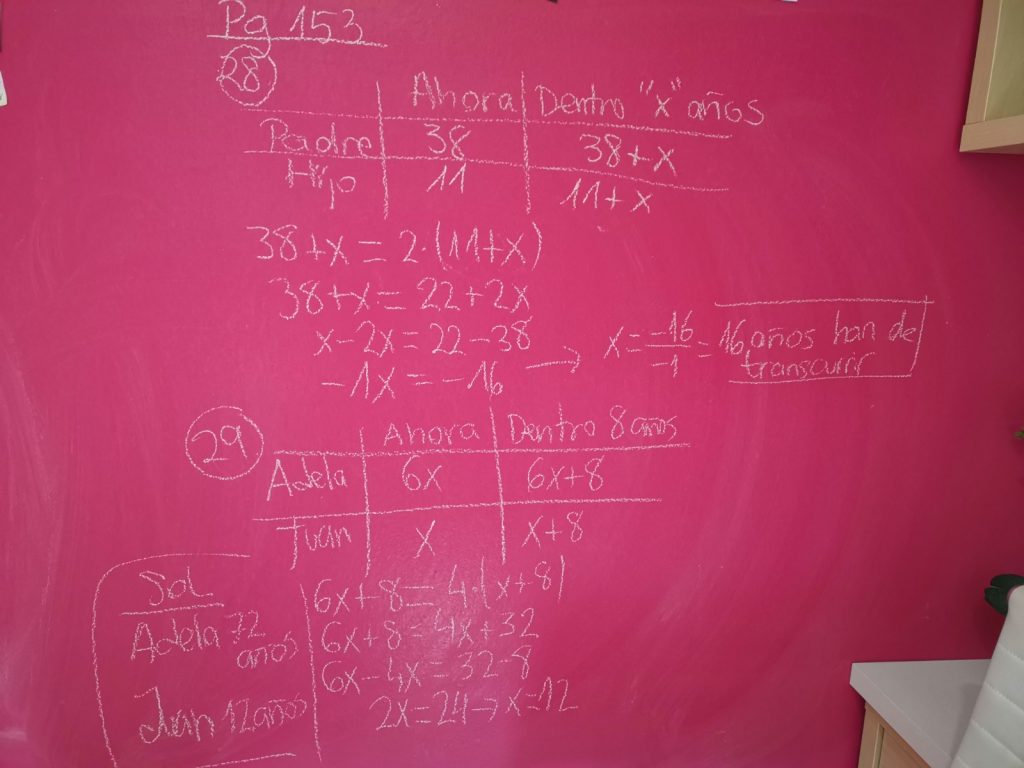 Pg 153
28
Ahora Dentro "x" años
Padre 38 38+x
Hijo 11 11+x
38+x = 2·(11+x)
38+x = 22+2x
x-2x = 22-38
-1x = -16 → x = -16/-1 = 16 años han de
transcurrir
29
Ahora Dentro 8 años
Adela 6x 6x+8
Juan x x+8
6x+8 = 4·(x+8)
6x+8 = 4x+32
6x-4x = 32-8
2x = 24 → x = 12
Sol
Adela 72
años
Juan 12 años